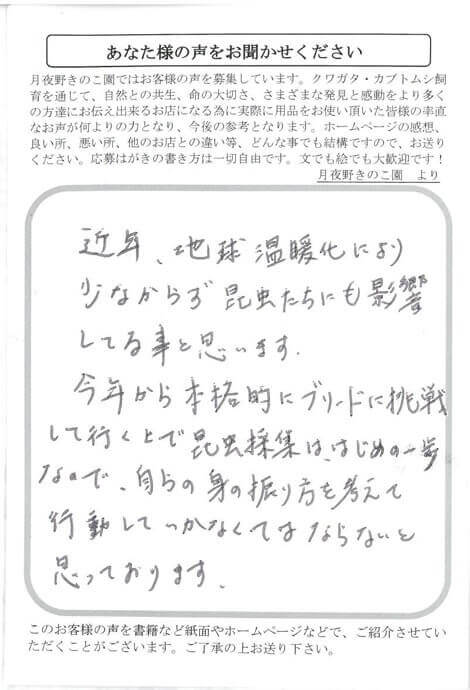 あなた様の声をお聞かせください
月夜野きのこ園ではお客様の声を募集しています。クワガタ・カブトムシ飼
育を通じて、自然との共生、命の大切さ、さまざまな発見と感動をより多く
の方達にお伝え出来るお店になる為に実際に用品をお使い頂いた皆様の率直
なお声が何よりの力となり、今後の参考となります。ホームページの感想、
良い所、悪い所、他のお店との違い等、どんな事でも結構ですので、お送り
ください。応募はがきの書き方は一切自由です。文でも絵でも大歓迎です！
月夜野きのこ園　より
近年、地球温暖化により
少なからず昆虫たちにも影響
してる事と思います.
今年から本格的にブリードに挑戦
して行く上で昆虫採集は、はじめの一歩
なので、自らの身の振り方を考えて
行動していかなくてはならないと
思っております.
このお客様の声を書籍など紙面やホームページなどで、ご紹介させてい
ただくことがございます。ご了承の上お送り下さい。